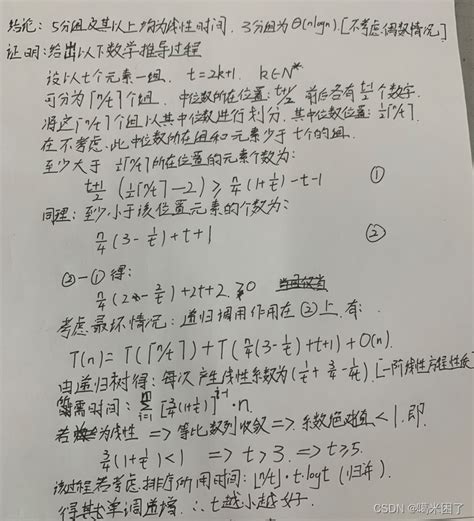 结论: 5分组及其以上均为线性时间, 3分组为Θ(nlogn).[不考虑偶数情况]
证明:给出以下数学推导过程
设以t个元素一组, t=2k+1, k∈N*
可分为⌈n/t⌉个组, 中位数所在位置: (t+1)/2 前后各有(t-1)/2个数字.
将这⌈n/t⌉个组以其中位数进行划分, 其中位数位置: ½⌈n/t⌉.
在不考虑此中位数所在组和元素少于t个的组.
至少大于 ½⌈n/t⌉所在位置的元素个数为:
(t+1)/2 (½⌈n/t⌉-2) ≥ n/4(1+1/t)-t-1 ①
同理: 至少小于该位置元素的个数为:
n/4(3-1/t)+t+1 ②
②-①得:
n/4(2-2/t)+2t+2 ≥0
考虑最坏情况: 递归调用作用在②上, 有:
T(n)=T(⌈n/t⌉)+T(n/4(3-1/t)+t+1)+O(n).
由递归树得: 每次产生线性系数为(1/t+3/4-1/4t).[一阶线性方程性质]
需时间: Σ[3/4(1+1/t)]^(i-1)·n.
若为线性 ⇒ 等比数列收敛 ⇒ 系数绝对值<1. 即
3/4(1+1/t)<1 ⇒ t>3. ⇒ t≥5.
该过程若考虑排序所用时间: ⌈n/t⌉·t·logt (归并)
得其为单调递增. ∴ t越小越好.
CSDN @喝米困了